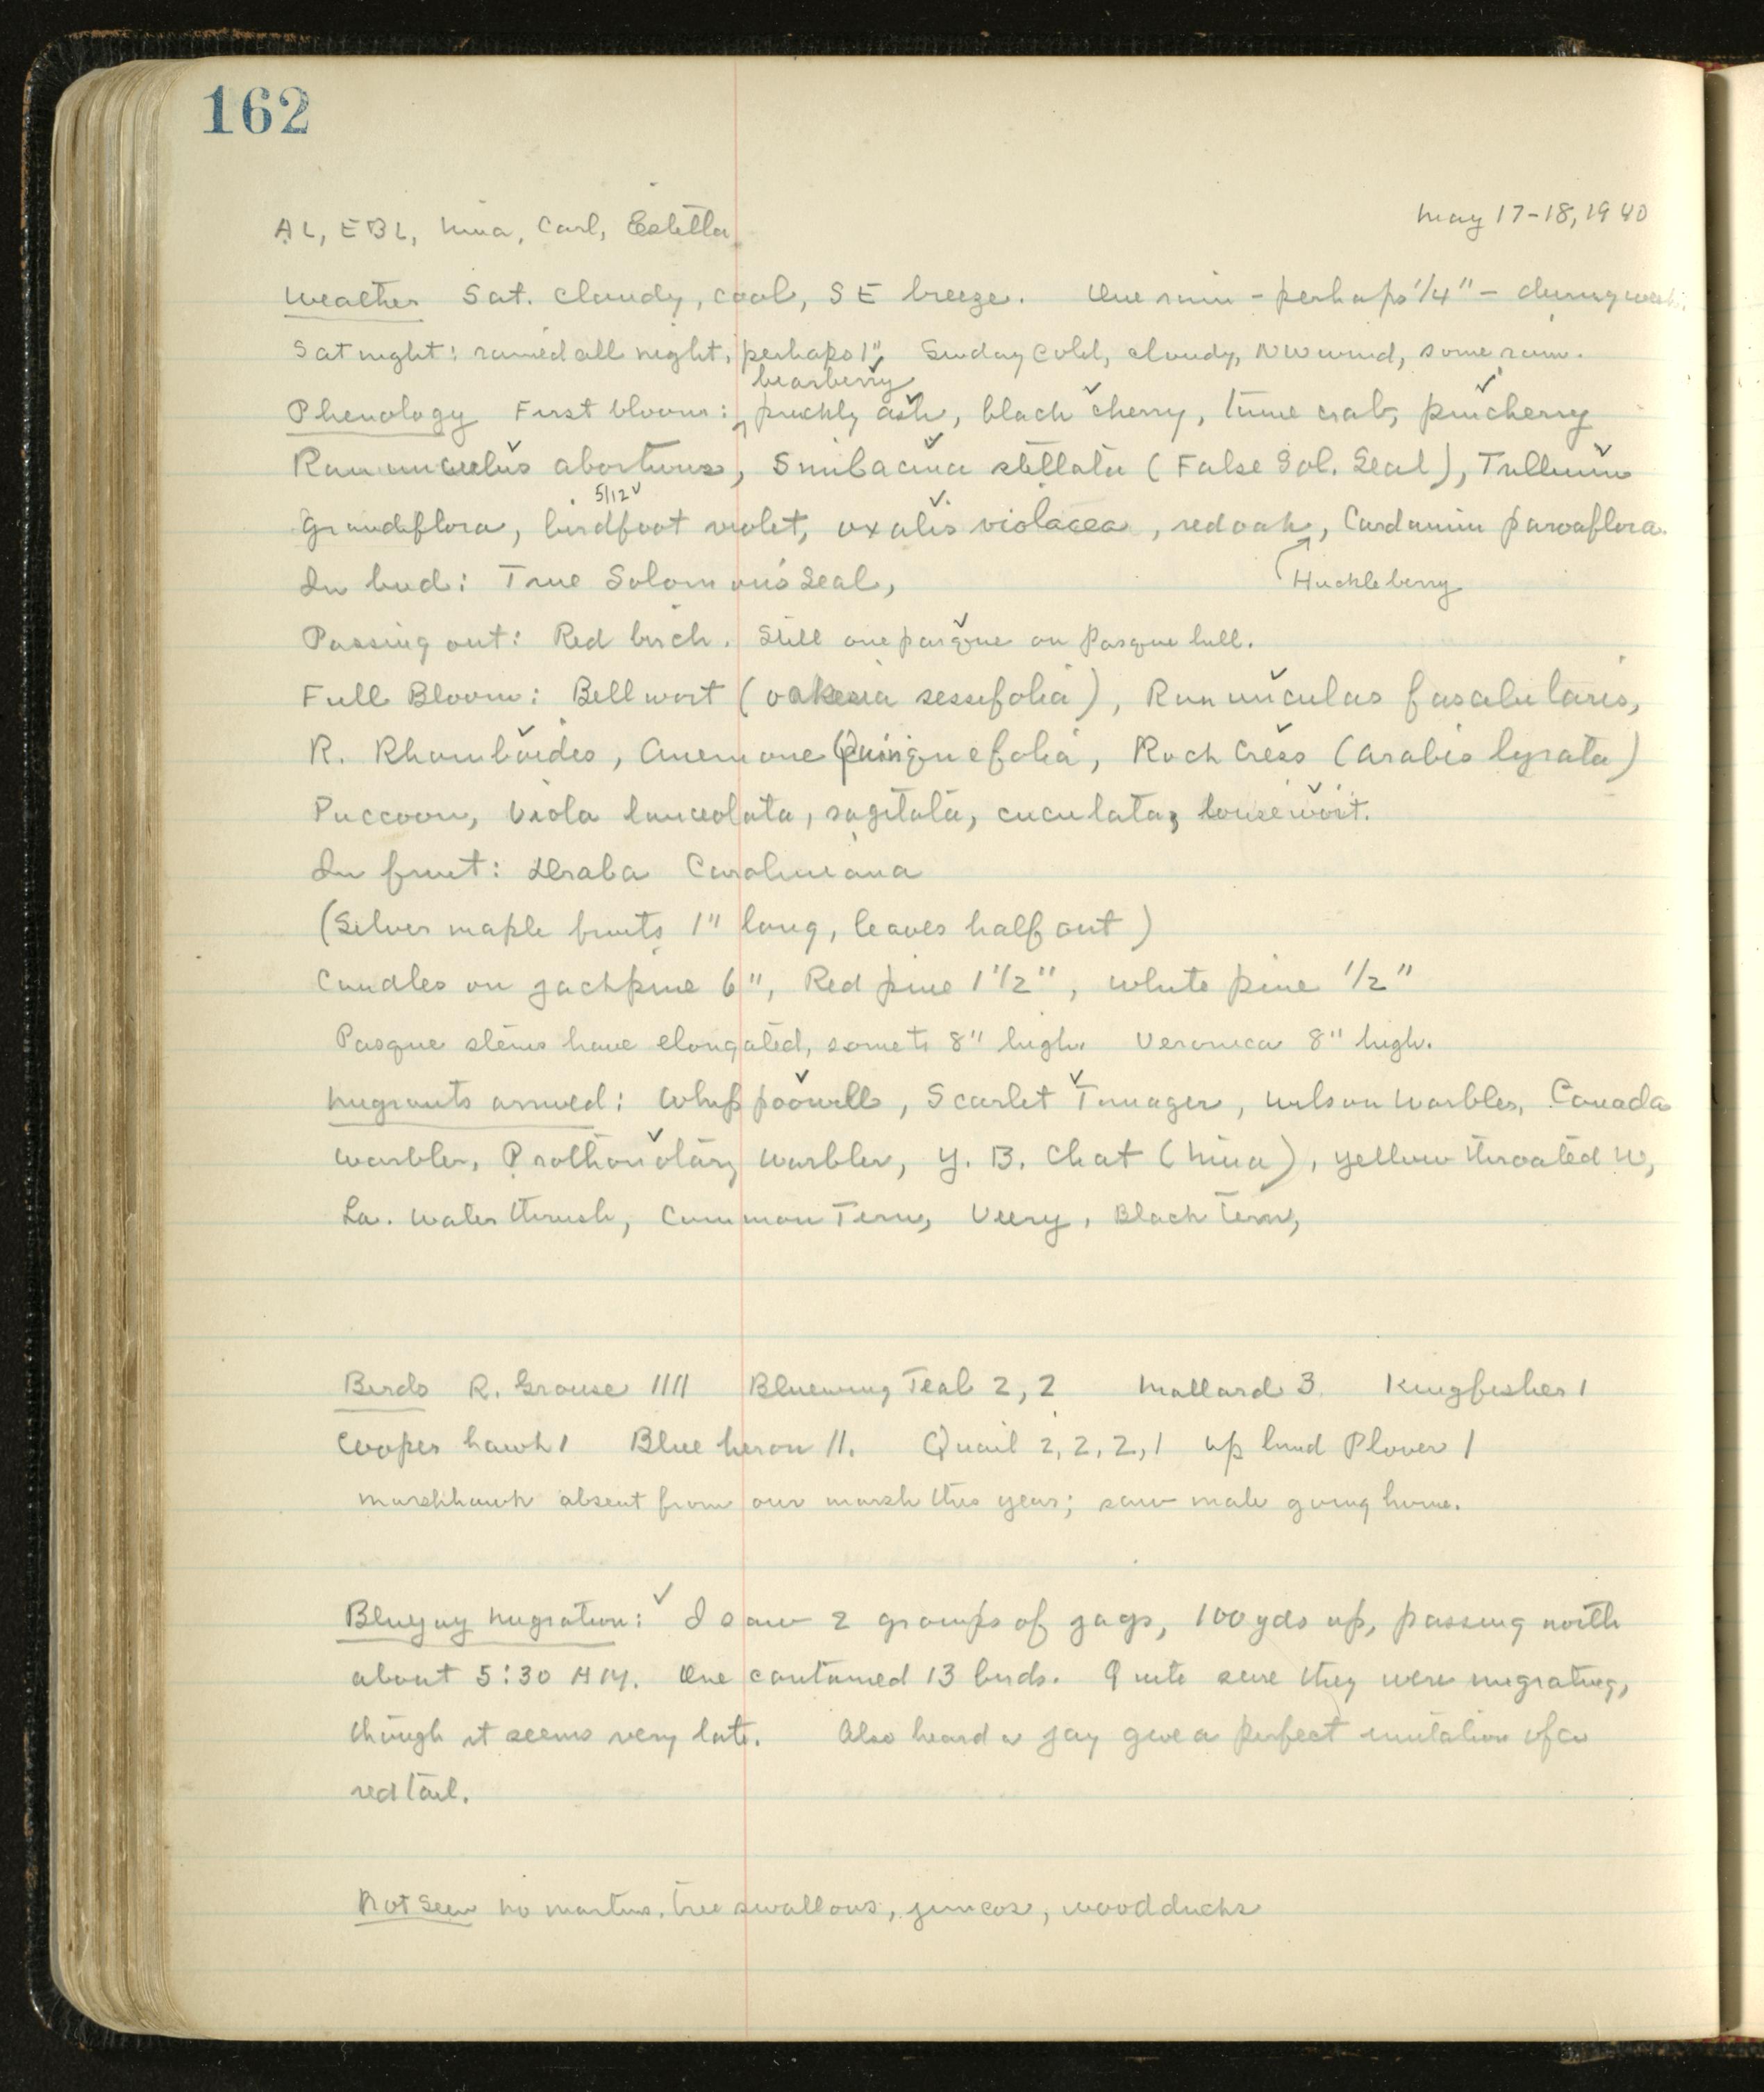 162
AL, EBL, Nina, Carl, Estella
May 17-18, 1940
Weather Sat. cloudy, cool, SE breeze. One rain - perhaps 1/4" - during week.
Sat night: rained all night, perhaps 1". Sunday cold, cloudy, NW wind, some rain.
bearberry
Phenology First bloom: prickly ash, black cherry, tame crab, pincherry
Ranunculus abortivus, Smilacina stellata (False Sol. Seal), Trillium
5/12 ✓
grandiflora, birdfoot violet, oxalis violacea, red oak, Cardamin parvaflora.
In bud: True Solomon's Seal,
Huckleberry
Passing out: Red birch. Still one pasque on Pasque hill.
Full Bloom: Bellwort (oakesia sessifolia), Ranunculas fascicularis,
R. Rhomboides, Anemone Quinquefolia, Rock Cress (Arabis lyrata)
Puccoon, Viola lanceolata, sagitata, cuculata, lousewort.
In fruit: Draba Caroliniana
(Silver maple fruits 1" long, leaves half out)
Candles on jackpine 6", Red pine 1 1/2", White pine 1/2"
Pasque stems have elongated, some to 8" high. Veronica 8" high.
Migrants arrived: Whippoorwill, Scarlet Tanager, Wilson Warbler, Canada
Warbler, Prothonotary Warbler, Y. B. Chat (Nina), yellow throated W,
La. Water thrush, Common Tern, Veery, Black Tern,
Birds R. Grouse 1111 Bluewing Teal 2, 2 Mallard 3 Kingfisher 1
Cooper hawk 1 Blue heron 11. Quail 2, 2, 2, 1 upland Plover 1
Marshhawk absent from our marsh this year; saw male going home.
Bluejay migration: I saw 2 groups of jays, 100 yds up, passing north
about 5:30 AM. One contained 13 birds. Quite sure they were migrating,
though it seems very late. Also heard a jay give a perfect imitation of a
redtail.
Not Seen no martins, tree swallows, juncos, woodducks